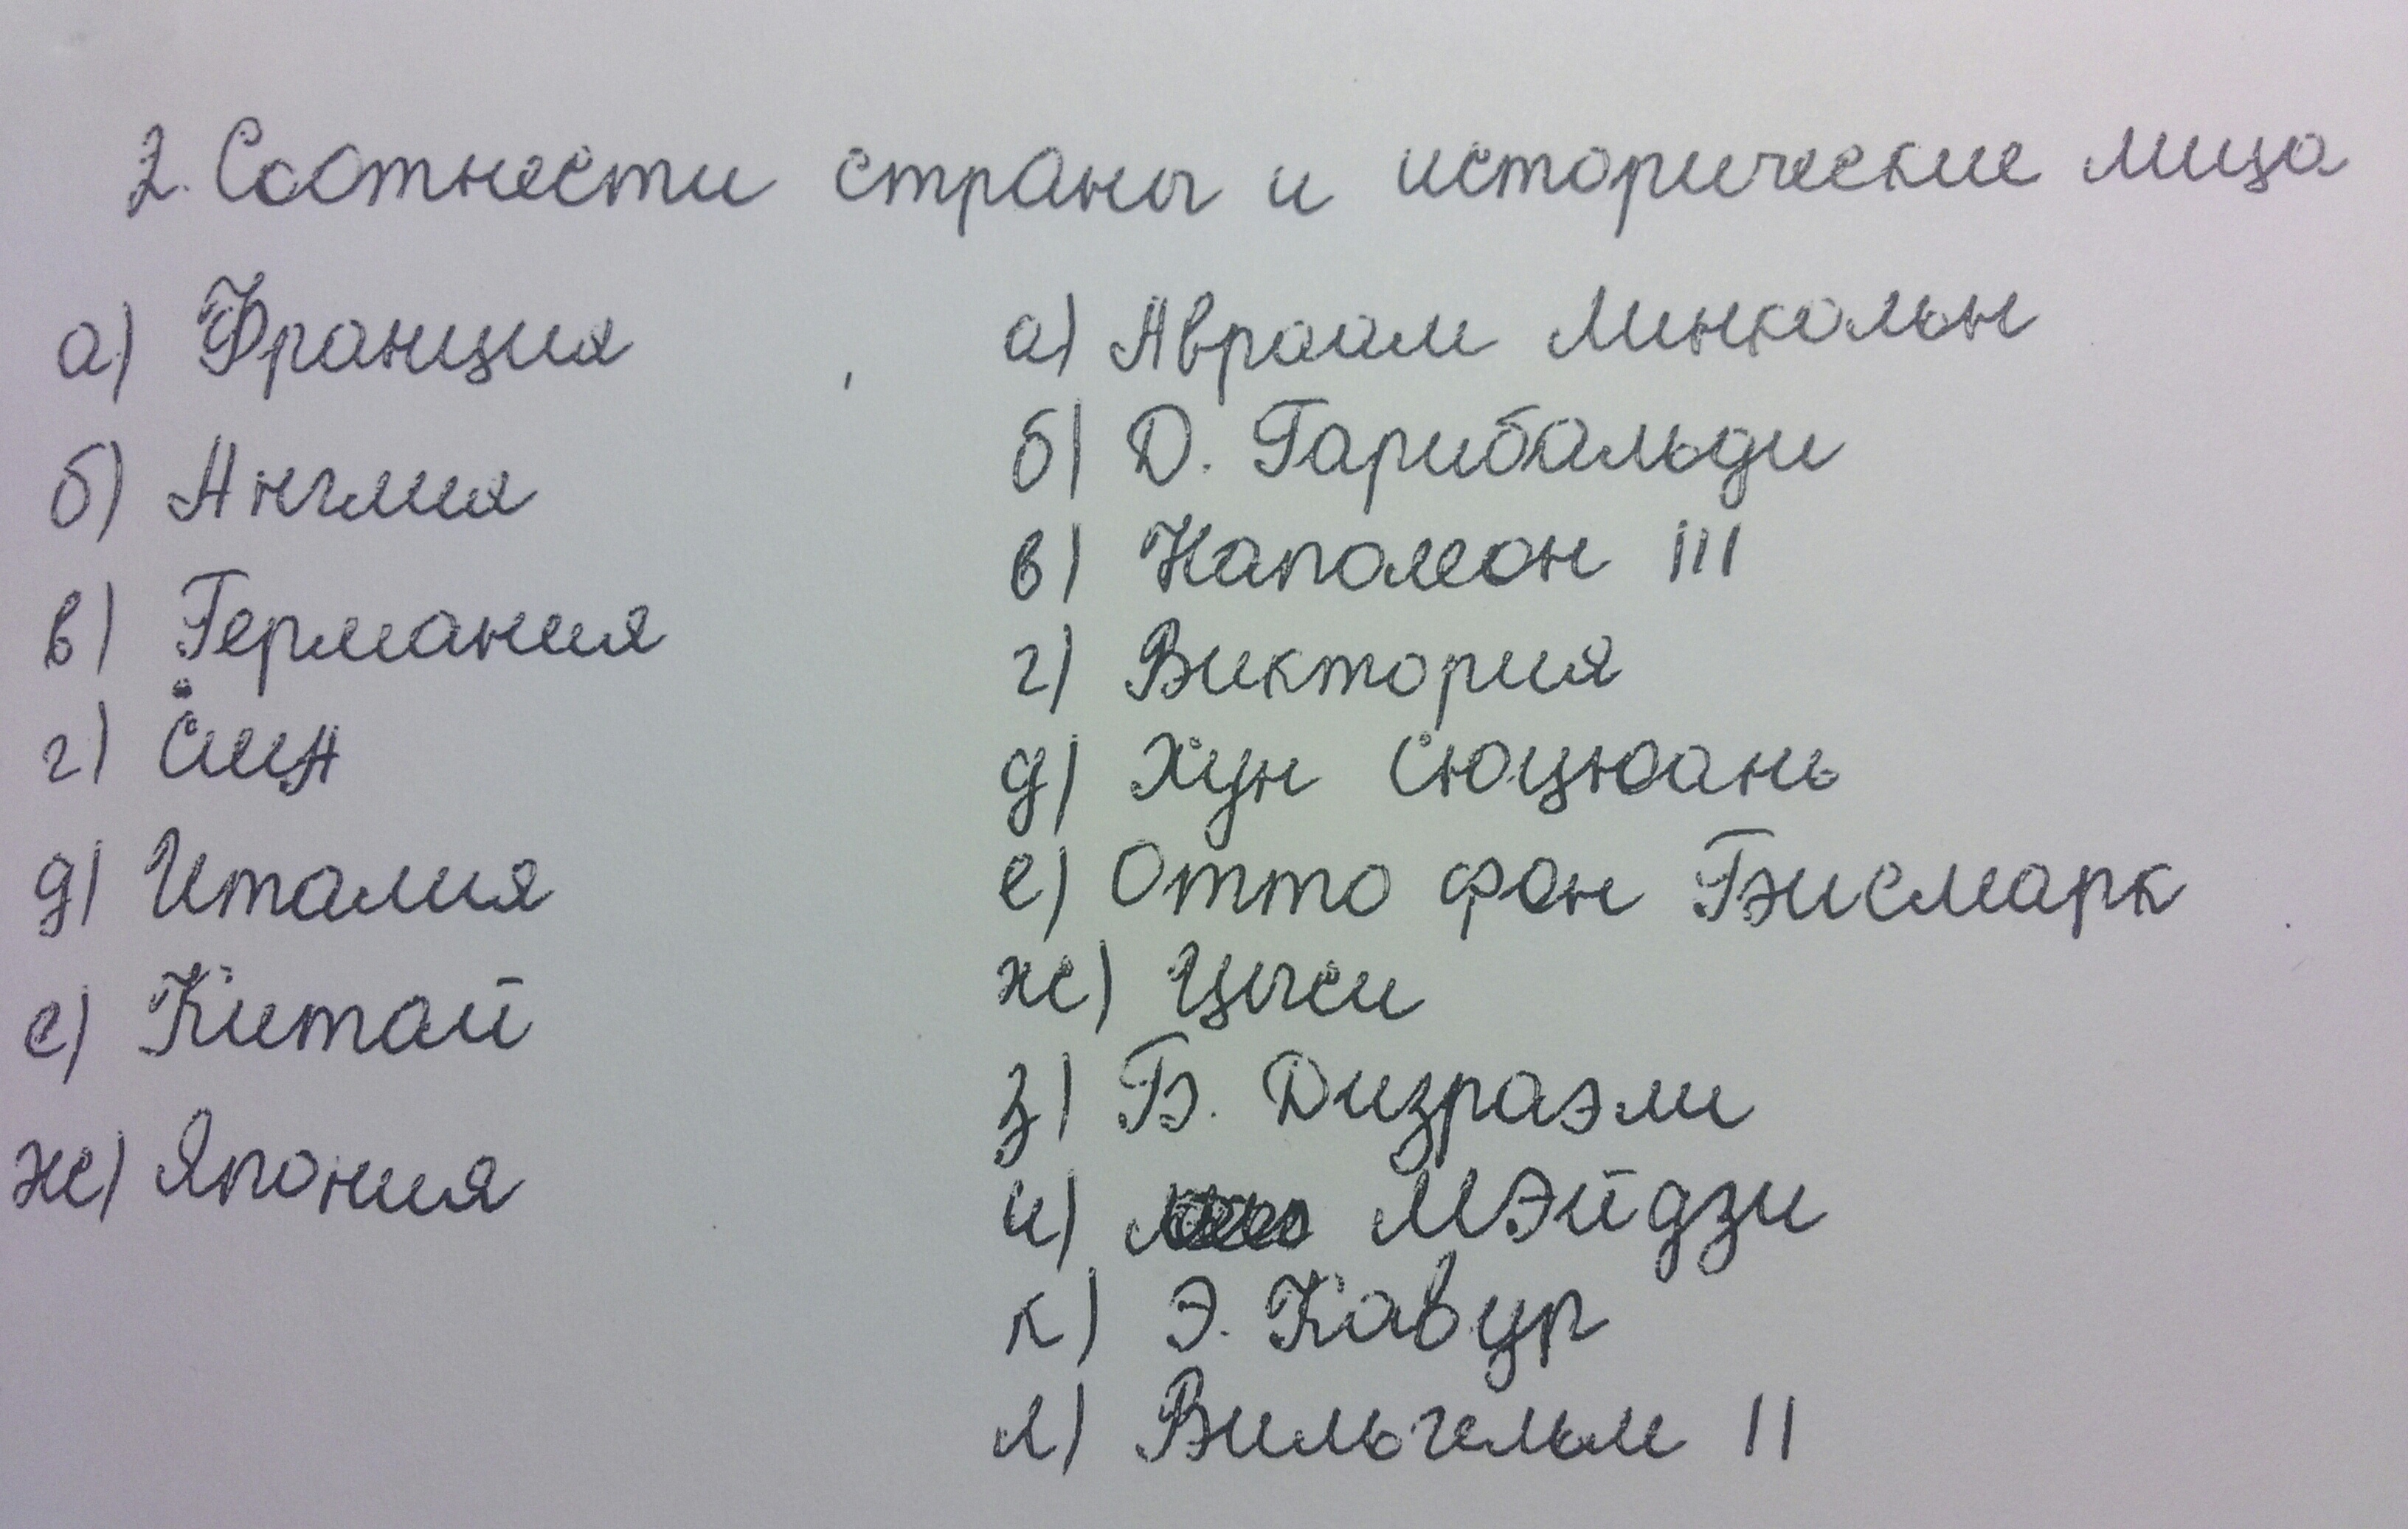 2. Соотнести страны и исторические лица
а) Франция
б) Англия
в) Германия
г) США
д) Италия
е) Китай
ж) Япония
а) Авраам Линкольн
б) Д. Гарибальди
в) Наполеон III
г) Виктория
д) Хун Сюцюань
е) Отто фон Бисмарк
ж) Цыси
з) Б. Дизраэли
и) Мэйдзи
к) Э. Кавур
л) Вильгельм II